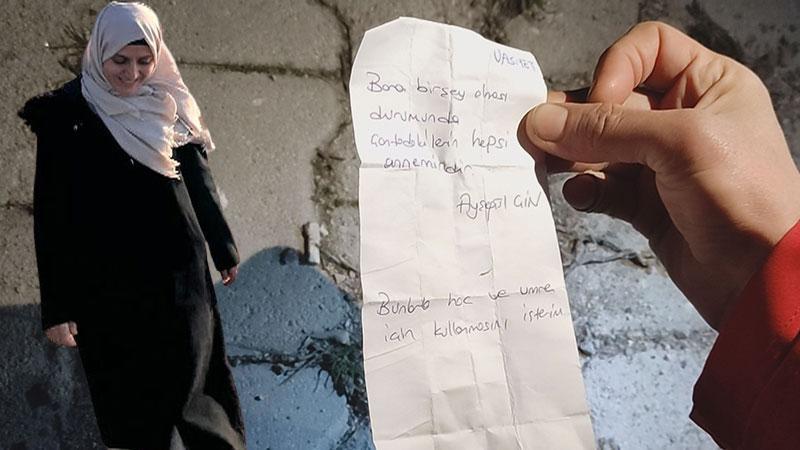 VASİYET
Bana birşey olması
durumunda
çantadakilerin hepsi
annemindir.
Ayşegül GİN
Bunlarla hac ve umre
için kullanmasını isterim